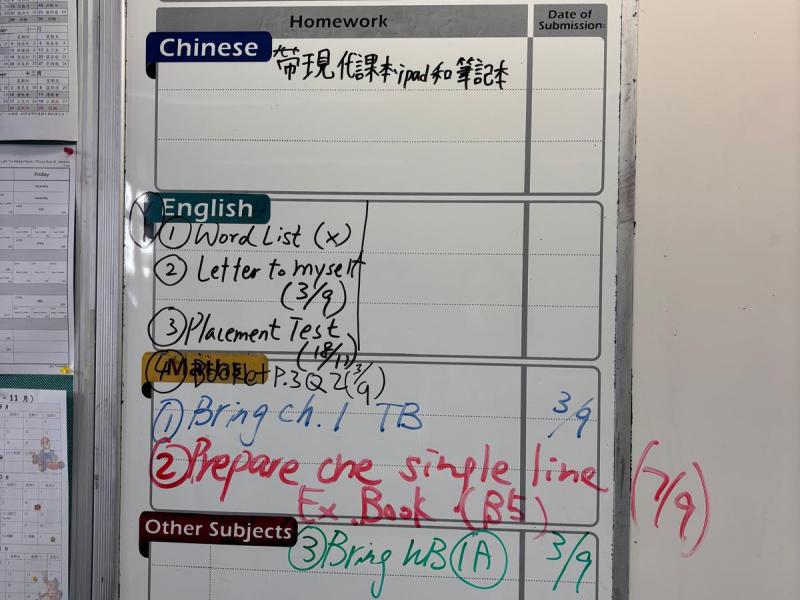 Homework
Date of Submission:
Chinese
帶現代課本、ipad和筆記本
English
① Word List (x)
② Letter to myself
(3/9)
③ Placement Test
(18/11)
④ Booklet P.3 Q2 (3/9)
Maths
① Bring Ch. 1 TB 3/9
② Prepare one single line (7/9)
Ex. Book (B5)
Other Subjects
③ Bring WB 1A 3/9
Friday
十二月